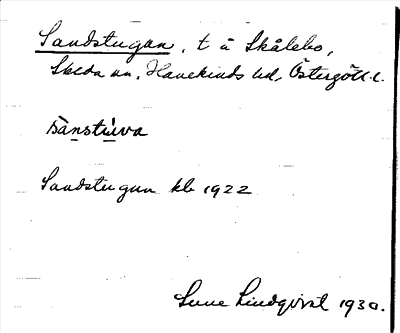 Sandstugan, t å Skålebo,
Skeda sn, Hanekinds hd, Östergötl. l.
sànstùva
Sandstugan kb 1922
Sune Lindqvist 1930.